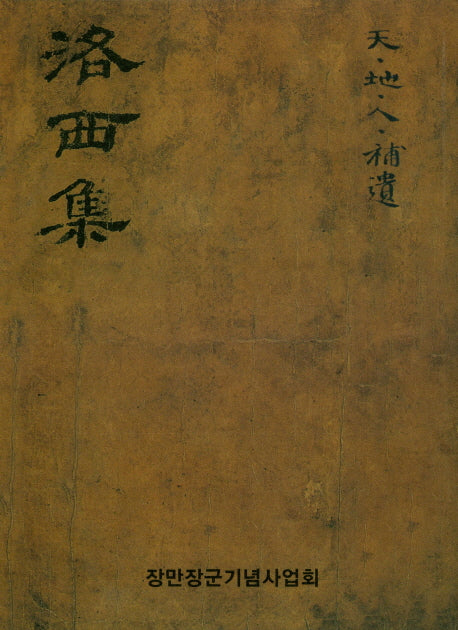 洛西集
天·地·人·補遺
장만장군기념사업회